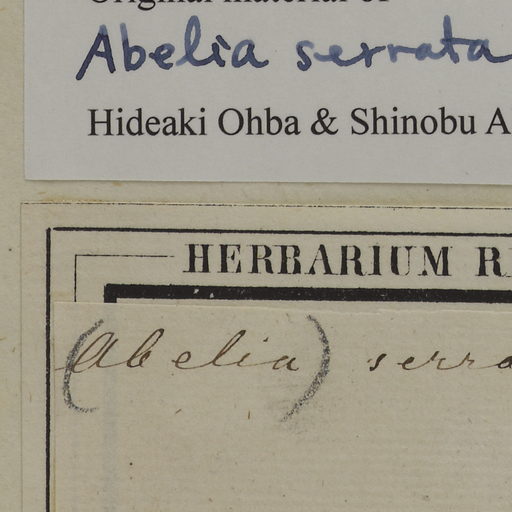 Original material of
Abelia serrata
Hideaki Ohba & Shinobu A
HERBARIUM R
(Abelia) serra